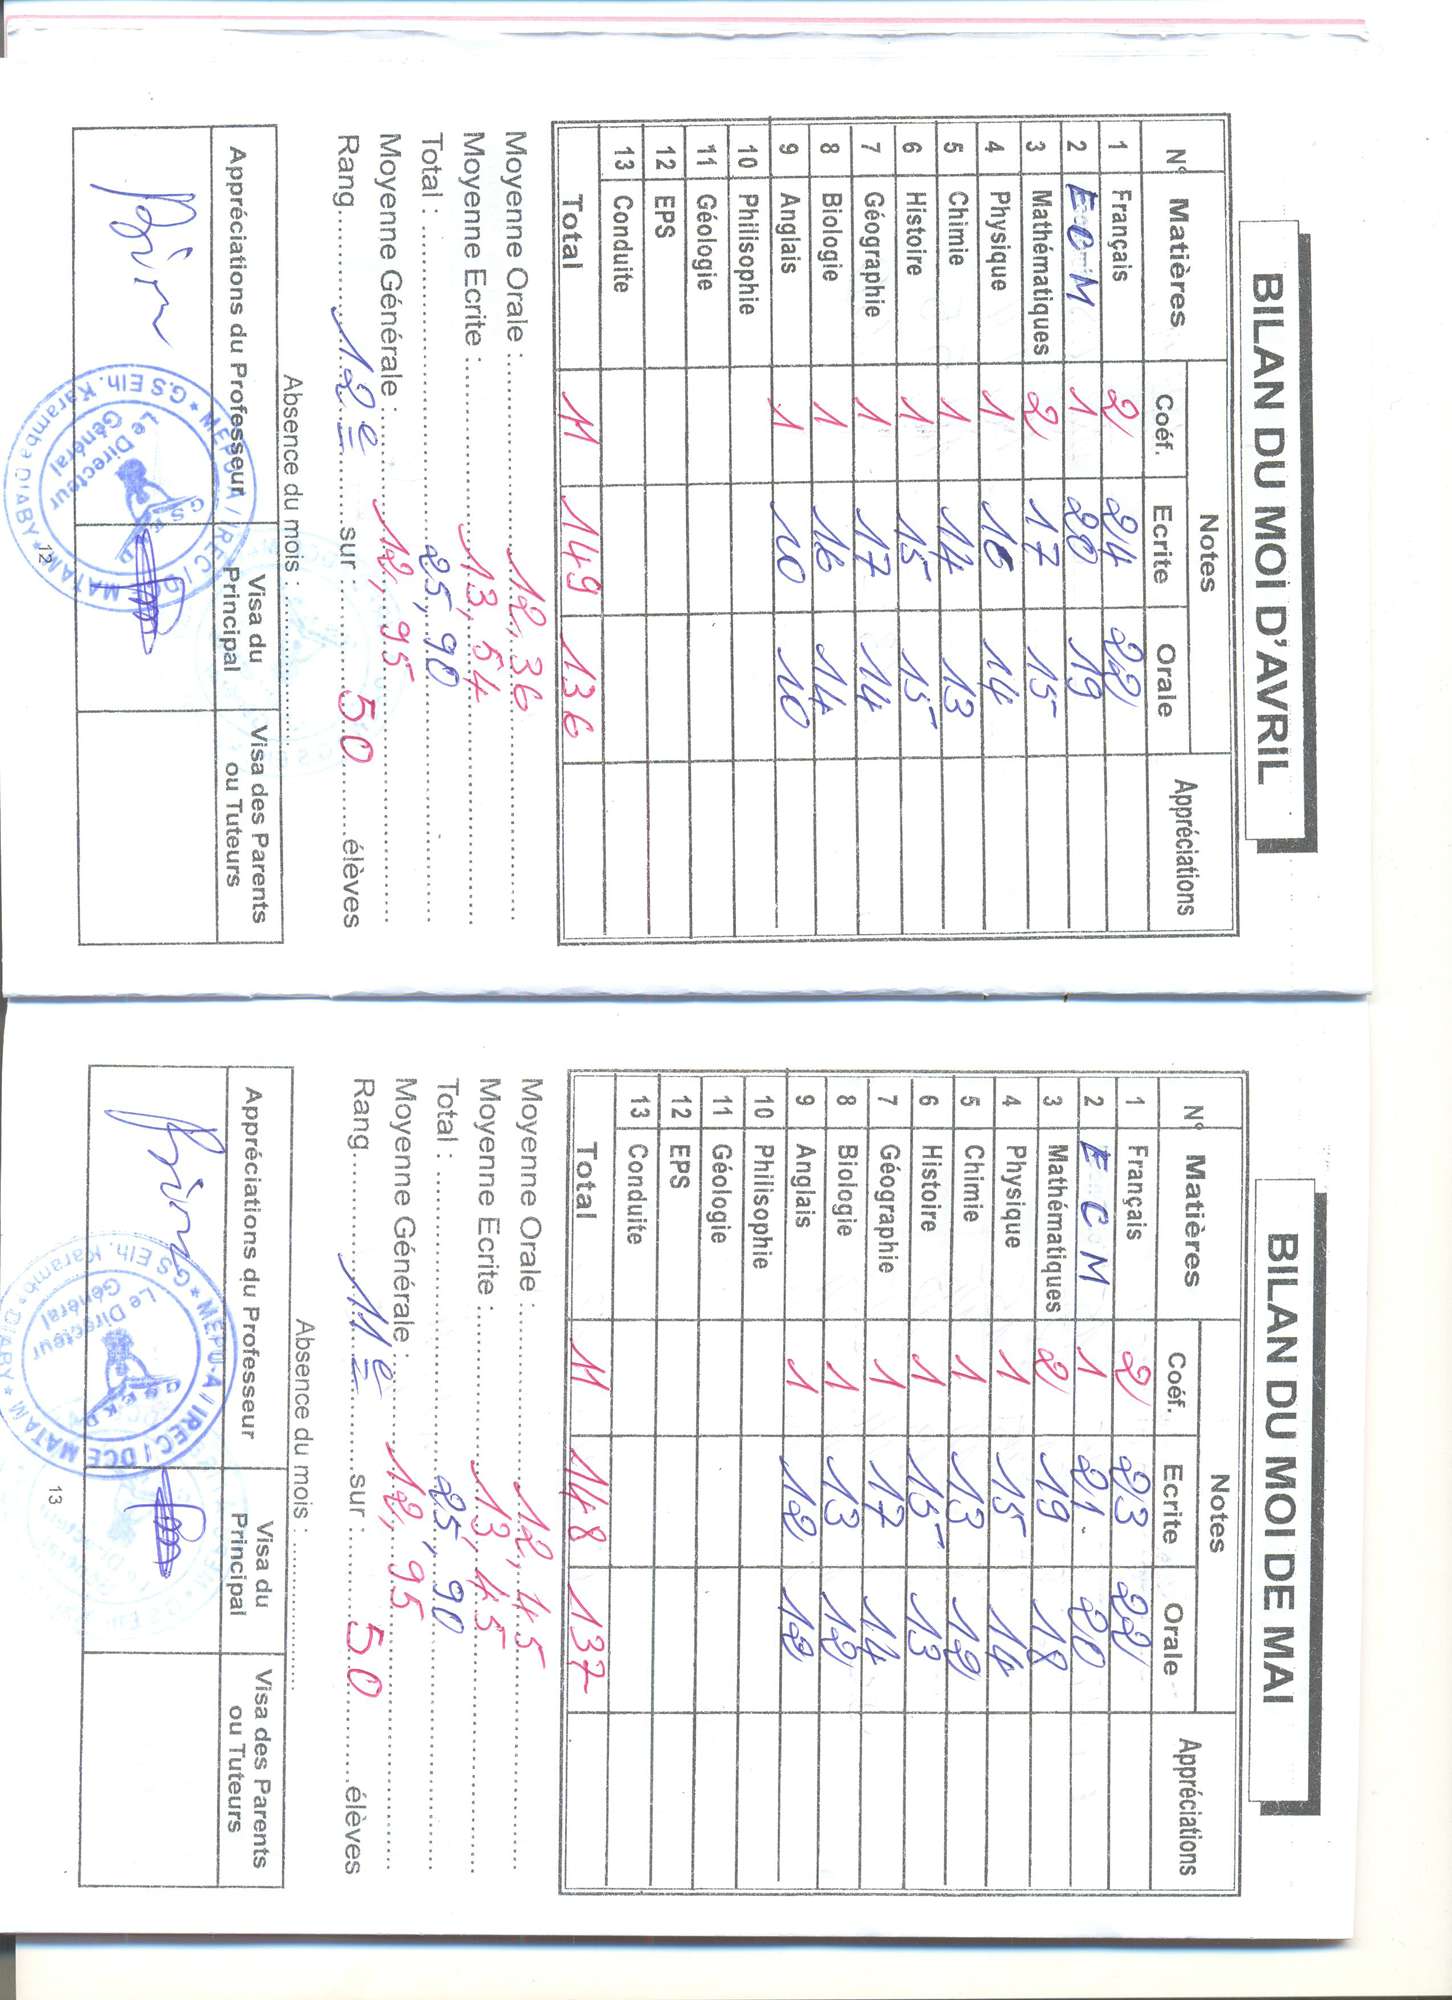 BILAN DU MOI D'AVRIL
N° Matières Notes Appréciations
Coéf. Ecrite Orale
1 Français 2 24 22
2 E C M 1 20 19
3 Mathématiques 2 17 15
4 Physique 1 16 14
5 Chimie 1 14 13
6 Histoire 1 15 15
7 Géographie 1 17 14
8 Biologie 1 16 14
9 Anglais 1 10 10
10 Philisophie
11 Géologie
12 EPS
13 Conduite
Total 11 149 136
Moyenne Orale : 12,36
Moyenne Ecrite : 13,54
Total : 25,90
Moyenne Générale : 12,95
Rang 12e sur : 50 élèves
Absence du mois :
Appréciations du Professeur Visa du Principal Visa des Parents ou Tuteurs
Bien
MEPU-A / IREC / D MATAM * G.S Elh. Karamba DIABY *
Le Directeur
Général
12
BILAN DU MOI DE MAI
N° Matières Notes Appréciations
Coéf. Ecrite Orale
1 Français 2 23 22
2 E C M 1 21. 20
3 Mathématiques 2 19 18
4 Physique 1 15 14
5 Chimie 1 13 12
6 Histoire 1 15 13
7 Géographie 1 17 14
8 Biologie 1 13 12
9 Anglais 1 12 12
10 Philisophie
11 Géologie
12 EPS
13 Conduite
Total 11 148 137
Moyenne Orale : 12,45
Moyenne Ecrite : 13,45
Total : 25,90
Moyenne Générale : 12,95
Rang 11e sur : 50 élèves
Absence du mois :
Appréciations du Professeur Visa du Principal Visa des Parents ou Tuteurs
Bien
MEPU-A / IREC / DCE MATAM * G.S Elh. Karamba DIABY *
Le Directeur
Général
13